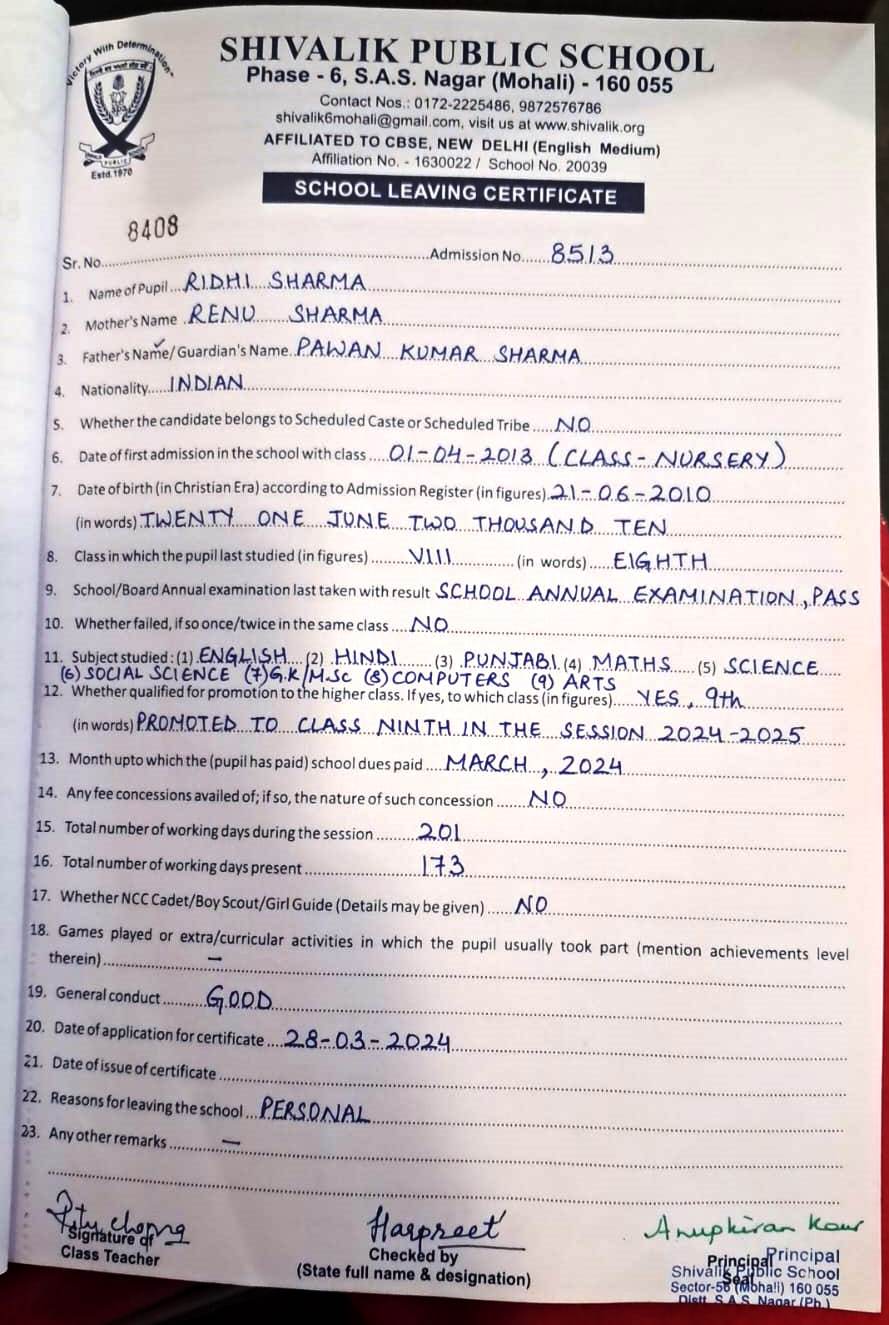 Victory With Determination
SHIVALIK PUBLIC SCHOOL
Phase - 6, S.A.S. Nagar (Mohali) - 160 055
Contact Nos.: 0172-2225486, 9872576786
shivalik6mohali@gmail.com, visit us at www.shivalik.org
AFFILIATED TO CBSE, NEW DELHI (English Medium)
Affiliation No. - 1630022 / School No. 20039
PUBLIC
Estd.1970
SCHOOL LEAVING CERTIFICATE
8408
Sr. No. Admission No. 8513
1. Name of Pupil RIDHI SHARMA
2. Mother's Name RENU SHARMA
3. Father's Name/ Guardian's Name PAWAN KUMAR SHARMA
4. Nationality INDIAN
5. Whether the candidate belongs to Scheduled Caste or Scheduled Tribe NO
6. Date of first admission in the school with class 01-04-2013 (CLASS-NURSERY)
7. Date of birth (in Christian Era) according to Admission Register (in figures) 21-06-2010
(in words) TWENTY ONE JUNE TWO THOUSAND TEN
8. Class in which the pupil last studied (in figures) VIII (in words) EIGHTH
9. School/Board Annual examination last taken with result SCHOOL ANNUAL EXAMINATION, PASS
10. Whether failed, if so once/twice in the same class NO
11. Subject studied : (1) ENGLISH (2) HINDI (3) PUNJABI (4) MATHS (5) SCIENCE
(6) SOCIAL SCIENCE (7) G.K/M.Sc (8) COMPUTERS (9) ARTS
12. Whether qualified for promotion to the higher class. If yes, to which class (in figures) YES, 9th
(in words) PROMOTED TO CLASS NINTH IN THE SESSION 2024-2025
13. Month upto which the (pupil has paid) school dues paid MARCH, 2024
14. Any fee concessions availed of; if so, the nature of such concession NO
15. Total number of working days during the session 201
16. Total number of working days present 173
17. Whether NCC Cadet/Boy Scout/Girl Guide (Details may be given) NO
18. Games played or extra/curricular activities in which the pupil usually took part (mention achievements level
therein) –
19. General conduct GOOD
20. Date of application for certificate 28-03-2024
21. Date of issue of certificate
22. Reasons for leaving the school PERSONAL
23. Any other remarks –
Harpreet Anupkiran Kaur
Signature of Checked by Principal Principal
Class Teacher (State full name & designation) Seal Shivalik Public School
Sector-56 (Mohali) 160 055
Distt. S.A.S. Nagar (Pb.)